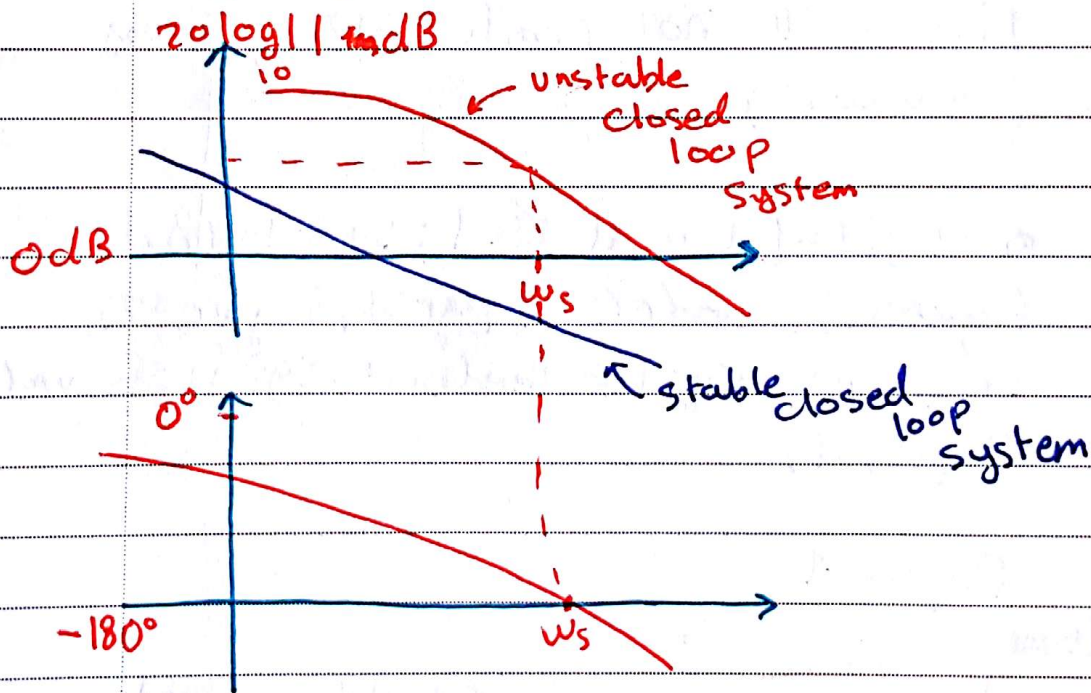 20log|| in dB
10
unstable
closed
loop
system
0dB
ws
stable closed
loop
system
0°
-180°
ws